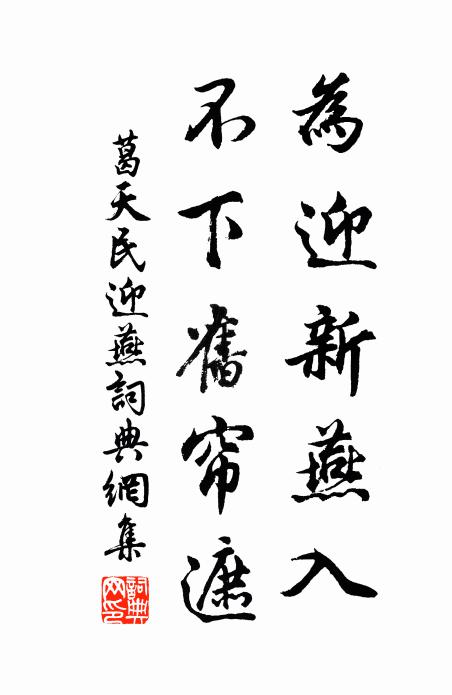 為迎新燕入
不下舊帘遮
葛天民迎燕詞典網集
詞典網印